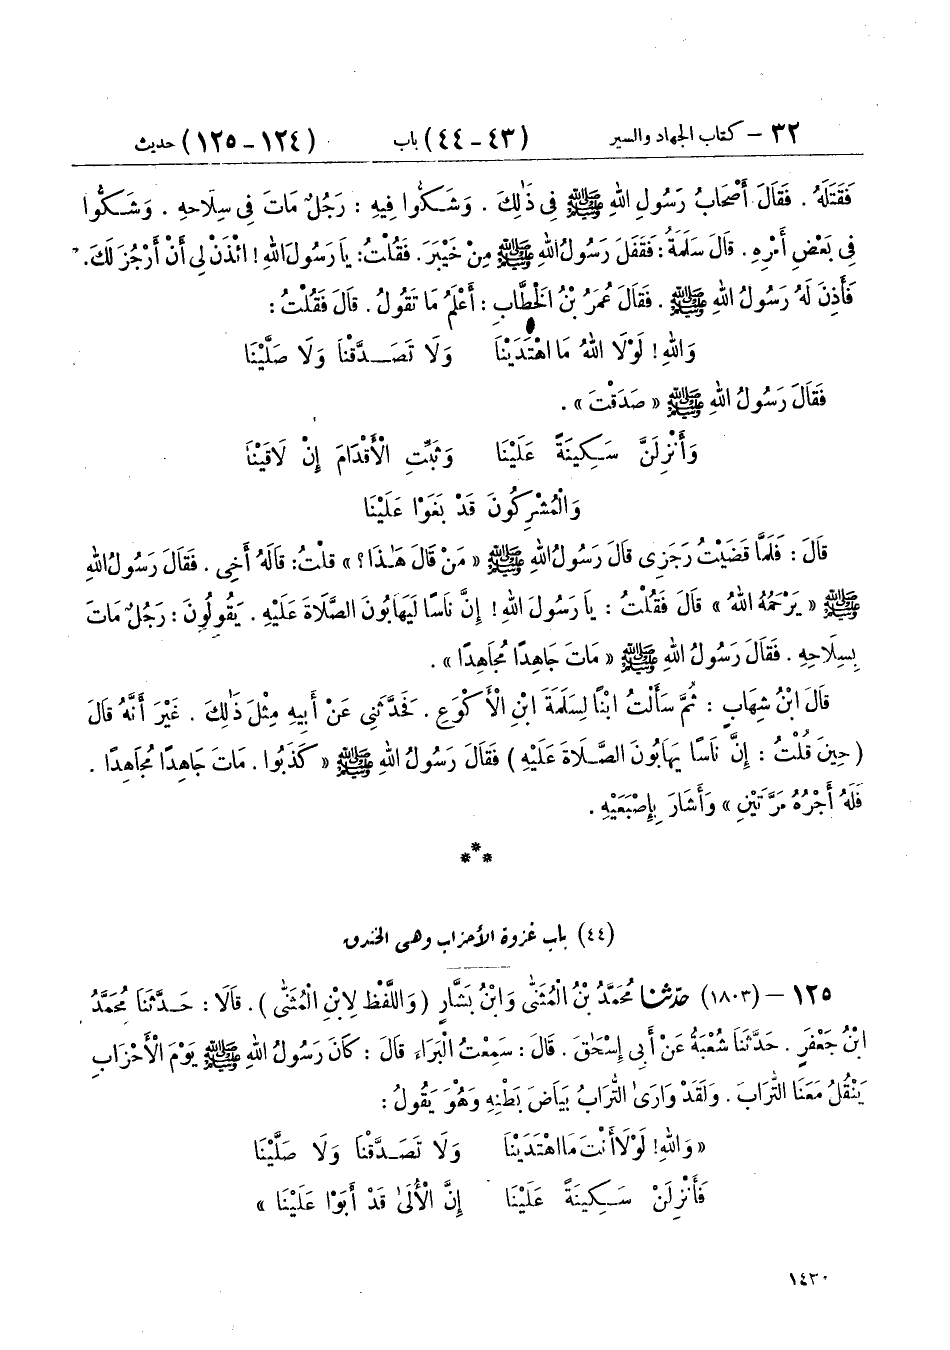 ٣٢ – كتاب الجهاد والسير (٤٣-٤٤) باب (١٢٤-١٢٥) حديث
فَقَتَلَهُ . فَقَالَ أَصْحَابُ رَسُولِ اللهِ ﷺ فِي ذَٰلِكَ . وَشَكُّوا فِيهِ : رَجُلٌ مَاتَ فِي سِلَاحِهِ . وَشَكُّوا
فِي بَعْضِ أَمْرِهِ . قَالَ سَلَمَةُ : فَقَفَلَ رَسُولُ اللهِ ﷺ مِنْ خَيْبَرَ . فَقُلْتُ: يَا رَسُولَ اللهِ ! ائْذَنْ لِي أَنْ أَرْجُزَ لَكَ .
فَأَذِنَ لَهُ رَسُولُ اللهِ ﷺ . فَقَالَ عُمَرُ بْنُ الْخَطَّابِ : أَعْلَمُ مَا تَقُولُ . قَالَ فَقُلْتُ :
وَاللهِ ! لَوْلَا اللهُ مَا اهْتَدَيْنَا وَلَا تَصَدَّقْنَا وَلَا صَلَّيْنَا
فَقَالَ رَسُولُ اللهِ ﷺ « صَدَقْتَ » .
وَأَنْزِلَنْ سَكِينَةً عَلَيْنَا وَثَبِّتِ الْأَقْدَامَ إِنْ لَاقَيْنَا
وَالْمُشْرِكُونَ قَدْ بَغَوْا عَلَيْنَا
قَالَ : فَلَمَّا قَضَيْتُ رَجَزِي قَالَ رَسُولُ اللهِ ﷺ « مَنْ قَالَ هَٰذَا ؟ » قلْتُ: قَالَهُ أَخِي . فَقَالَ رَسُولُ اللهِ
ﷺ « يَرْحَمُهُ اللهُ » قَالَ فَقُلْتُ : يَا رَسُولَ اللهِ ! إِنَّ نَاسًا لَيَهَابُونَ الصَّلَاةَ عَلَيْهِ . يَقُولُونَ : رَجُلٌ مَاتَ
بِسِلَاحِهِ . فَقَالَ رَسُولُ اللهِ ﷺ « مَاتَ جَاهِدًا مُجَاهِدًا » .
قَالَ ابْنُ شِهَابٍ : ثُمَّ سَأَلْتُ ابْنًا لِسَلَمَةَ ابْنِ الْأَكْوَعِ . فَحَدَّثَنِي عَنْ أَبِيهِ مِثْلَ ذَٰلِكَ . غَيْرَ أَنَّهُ قَالَ
( حِينَ قُلْتُ : إِنَّ نَاسًا يَهَابُونَ الصَّلَاةَ عَلَيْهِ ) فَقَالَ رَسُولُ اللهِ ﷺ « كَذَبُوا . مَاتَ جَاهِدًا مُجَاهِدًا .
فَلَهُ أَجْرُهُ مَرَّتَيْنِ » وَأَشَارَ بِإِصْبَعَيْهِ .
***
(٤٤) باب غزوة الأحزاب وهى الخندق
١٢٥ – (١٨٠٣) حَدَّثَنَا مُحَمَّدُ بْنُ الْمُثَنَّىٰ وَابْنُ بَشَّارٍ ( وَاللَّفْظُ لِابْنِ الْمُثَنَّىٰ ) . قَالَا : حَدَّثَنَا مُحَمَّدُ
ابْنُ جَعْفَرٍ . حَدَّثَنَا شُعْبَةُ عَنْ أَبِي إِسْحَٰقَ . قَالَ : سَمِعْتُ الْبَرَاءَ قَالَ : كَانَ رَسُولُ اللهِ ﷺ يَوْمَ الْأَحْزَابِ
يَنْقُلُ مَعَنَا التُّرَابَ . وَلَقَدْ وَارَىٰ التُّرَابُ بَيَاضَ بَطْنِهِ وَهُوَ يَقُولُ :
« وَاللهِ ! لَوْلَا أَنْتَ مَا اهْتَدَيْنَا وَلَا تَصَدَّقْنَا وَلَا صَلَّيْنَا
فَأَنْزِلَنْ سَكِينَةً عَلَيْنَا إِنَّ الْأُلَىٰ قَدْ أَبَوْا عَلَيْنَا »
١٤٣٠